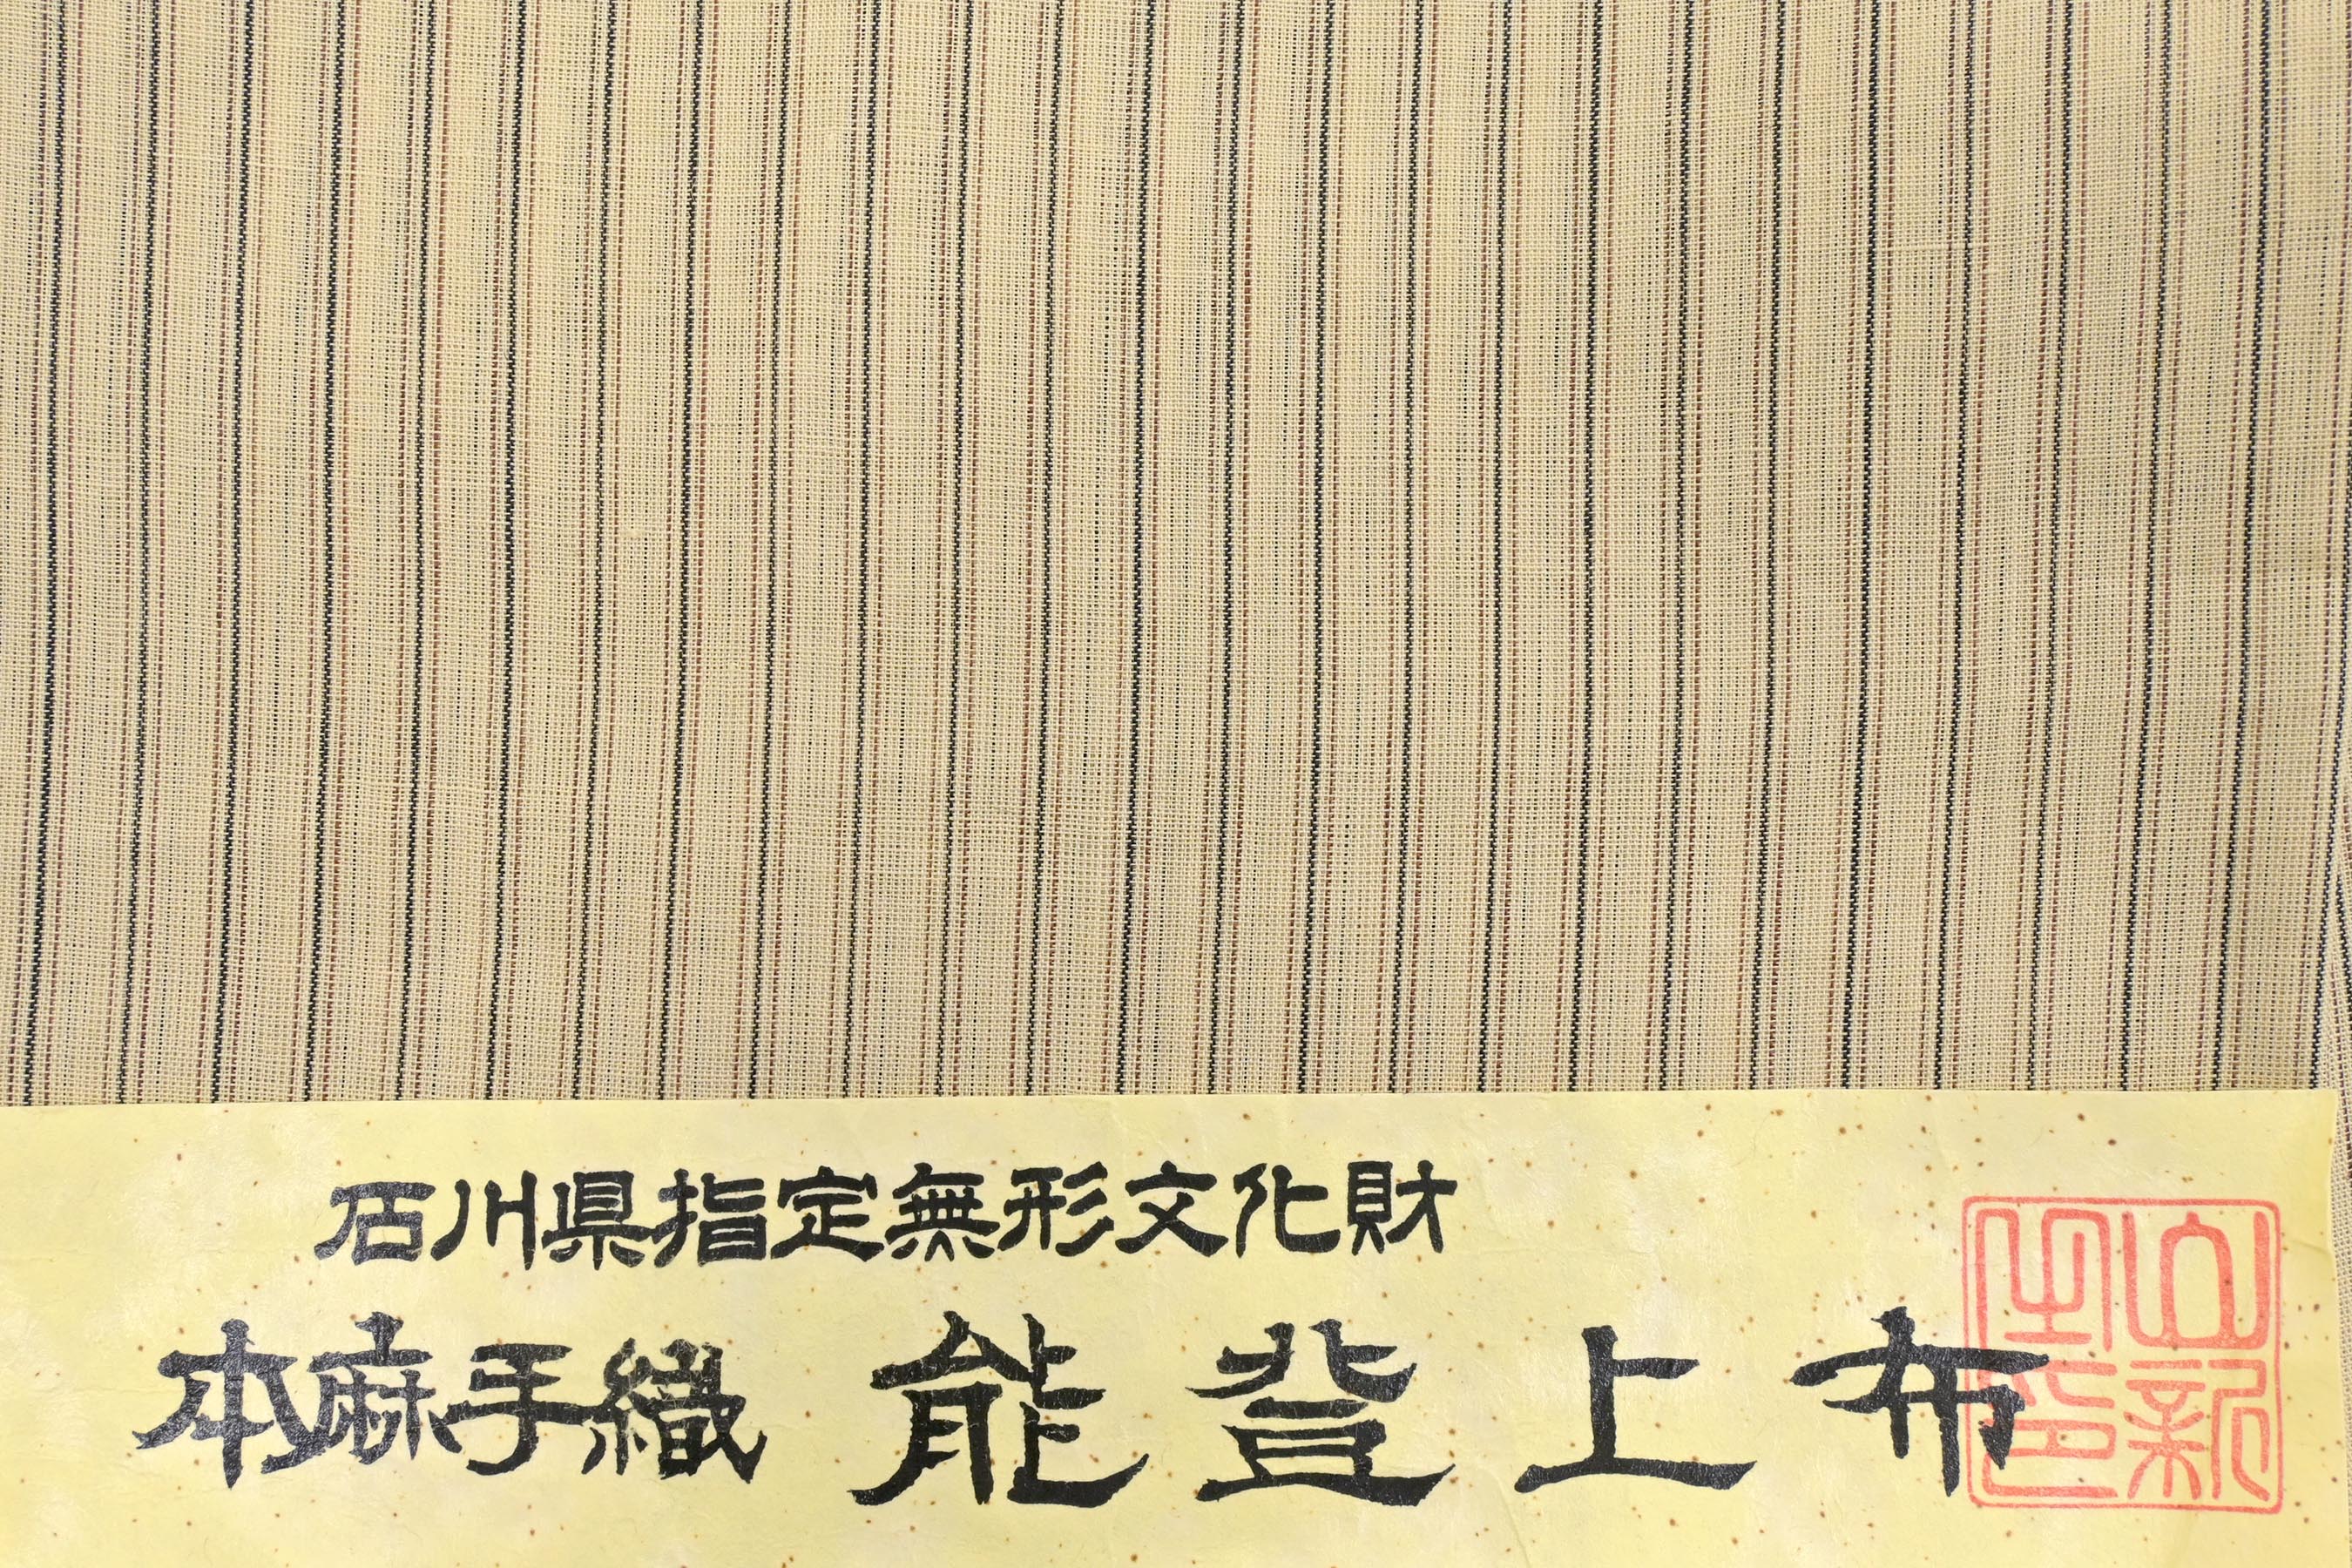 石川県指定無形文化財
本麻手織 能登上布